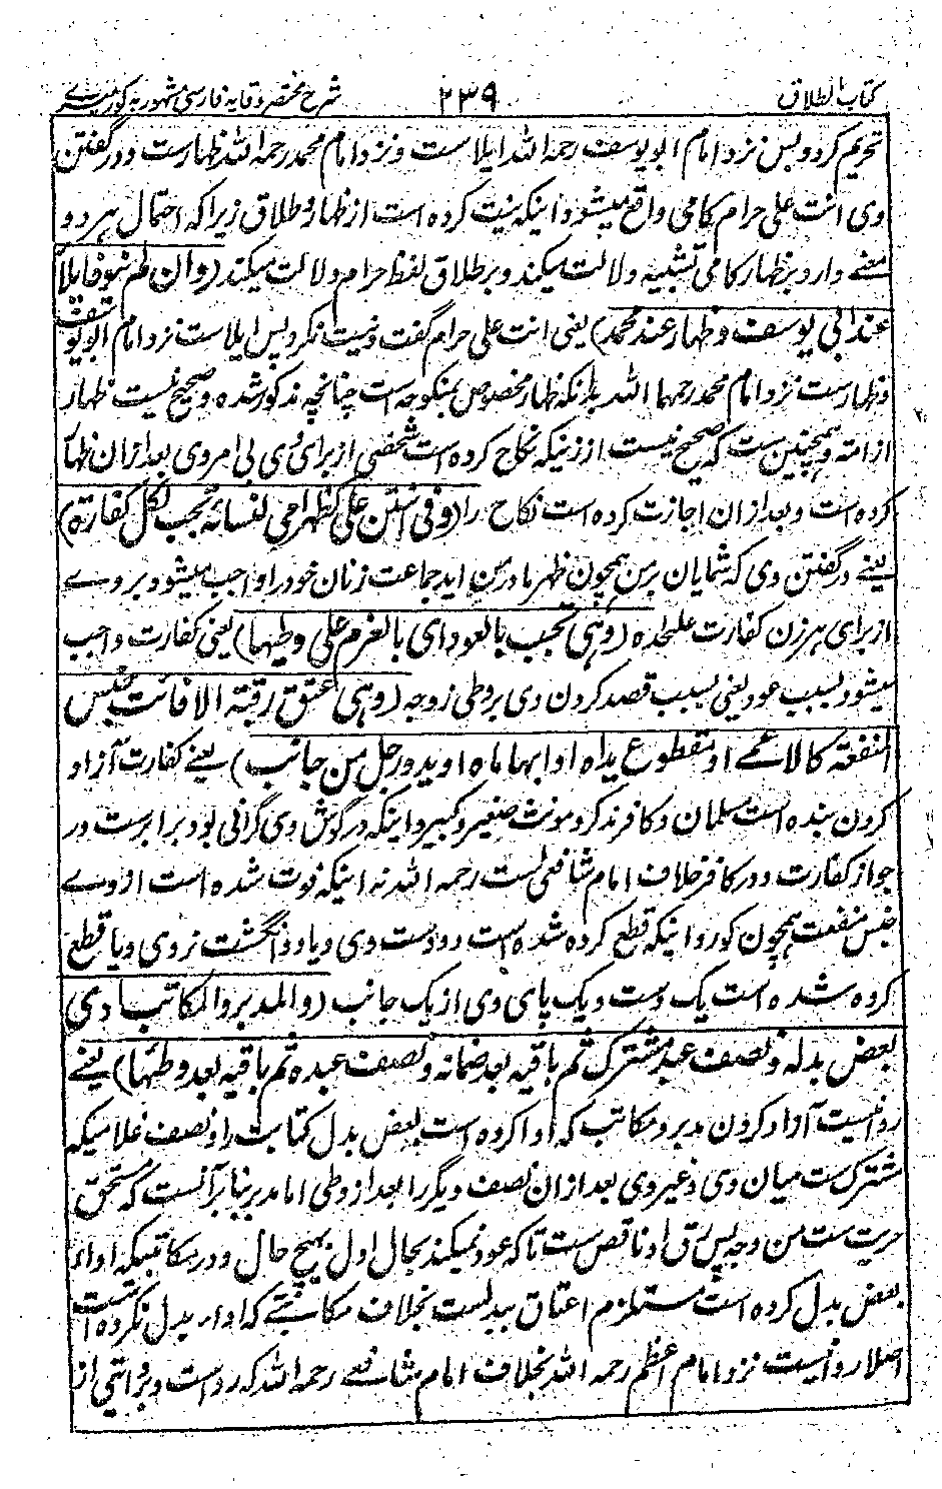 کتاب الطلاق ۲۳۹ شرح مختصر وقایه فارسی مشهور به کور میرے
تحریم کرد و پس نزد امام ابو یوسف رحمه الله ایلاست و نزد امام محمد رحمه الله ظهارست و در گفتن
وی انت علی حرام کامی واقع میشود اینکه نیت کرده است از ظهار و طلاق زیرا که احتمال هر دو
معنے دارد بر ظهار کامی تشبیه دلالت میکند و بر طلاق لفظ حرام دلالت میکند (وان لم ینو فایلاً
عند ابی یوسف و ظهار عند محمد) یعنی انت علی حرام گفت و نیت نکرد پس ایلاست نزد امام ابو یوسف
و ظهارست نزد امام محمد رحمهما الله بدانکه ظهار مخصوص بمنکوحه است چنانچه مذکور شده و صحیح نیست ظهار
از امته و همچنین ست که صحیح نیست از زنیکه نکاح کرده است شخصی از برای وی بی امر وی بعد ازان ظهار
کرده است و بعد ازان اجازت کرده است نکاح را (وفی انتن علی کظهر امی لنسائه یجب لکل کفارة)
یعنے در گفتن وی که شمایان بر من همچون ظهر مادر من اید جماعت زنان خود را واجب میشود بر وے
از برای هر زن کفارت علیحده (وهی تجب بالعود ای بالعزم علی وطیها) یعنی کفارت واجب
میشود بسبب عود یعنی بسبب قصد کردن وی بر وطی زوجه (وهی عتق رقبة الا فائت جنس
المنفعة کالاعمے او مقطوع یداه او ابهاماه او ید و رجل من جانب) یعنے کفارت آزاد
کردن بنده است مسلمان و کافر مذکر و مونث صغیر و کبیر و اینکه در گوش وی گرانی بود برابرست در
جواز کفارت و در کافر خلاف امام شافعی ست رحمه الله نه اینکه فوت شده است از وے
جنس منفعت همچون کور و اینکه قطع کرده شده است دو دست وی و یا دو انگشت نر وی و یا قطع
کرده شده است یک دست و یک پای وی از یک جانب (والمدبر والمکاتب ادی
بعض بدله و نصف عبد مشترک ثم باقیه بعد ضمانه و نصف عبده ثم باقیه بعد وطئها) یعنے
روا نیست آزاد کردن مدبر و مکاتب که ادا کرده است بعض بدل کتابت را و نصف غلامیکه
مشترک ست میان وی و غیر وی بعد ازان نصف دیگر را بعد از وطی اما مدبر بنا بر آنست که مستحق
حریت ست من وجه پس رق او ناقص ست تا که عود نمیکند بحال اول بهیچ حال و در مکاتبیکه اداء
بعض بدل کرده است مستلزم اعتاق ببدلست بخلاف مکاتبے که اداء بدل نکرده است
اصلا روا نیست نزد امام اعظم رحمه الله بخلاف امام شافعے رحمه الله که رواست و روایتی از